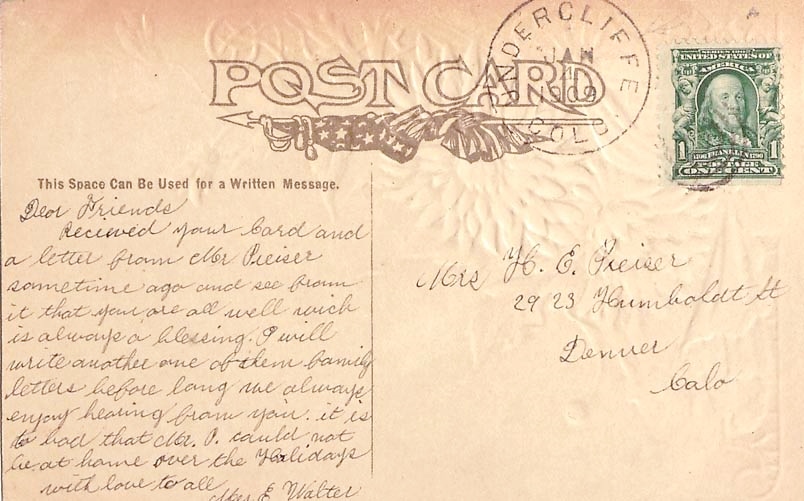 POST CARD
PINDERCLIFFE
JAN
4
1909
COLO
SERIES 1902
UNITED STATES OF
AMERICA
1 1706 FRANKLIN 1790 1
POSTAGE
ONE CENT
This Space Can Be Used for a Written Message.
Dear Friends
Recieved your Card and
a letter from Mr Preiser
sometime ago and see from
it that you are all well wich
is always a blessing. I will
write another one of them family
letters before long we always
enjoy hearing from you. it is
to bad that Mr. P. could not
be at home over the Holidays
with love to all
Mrs E Walter
Mrs H. E. Preiser
2923 Humboldt St
Denver
Colo
This